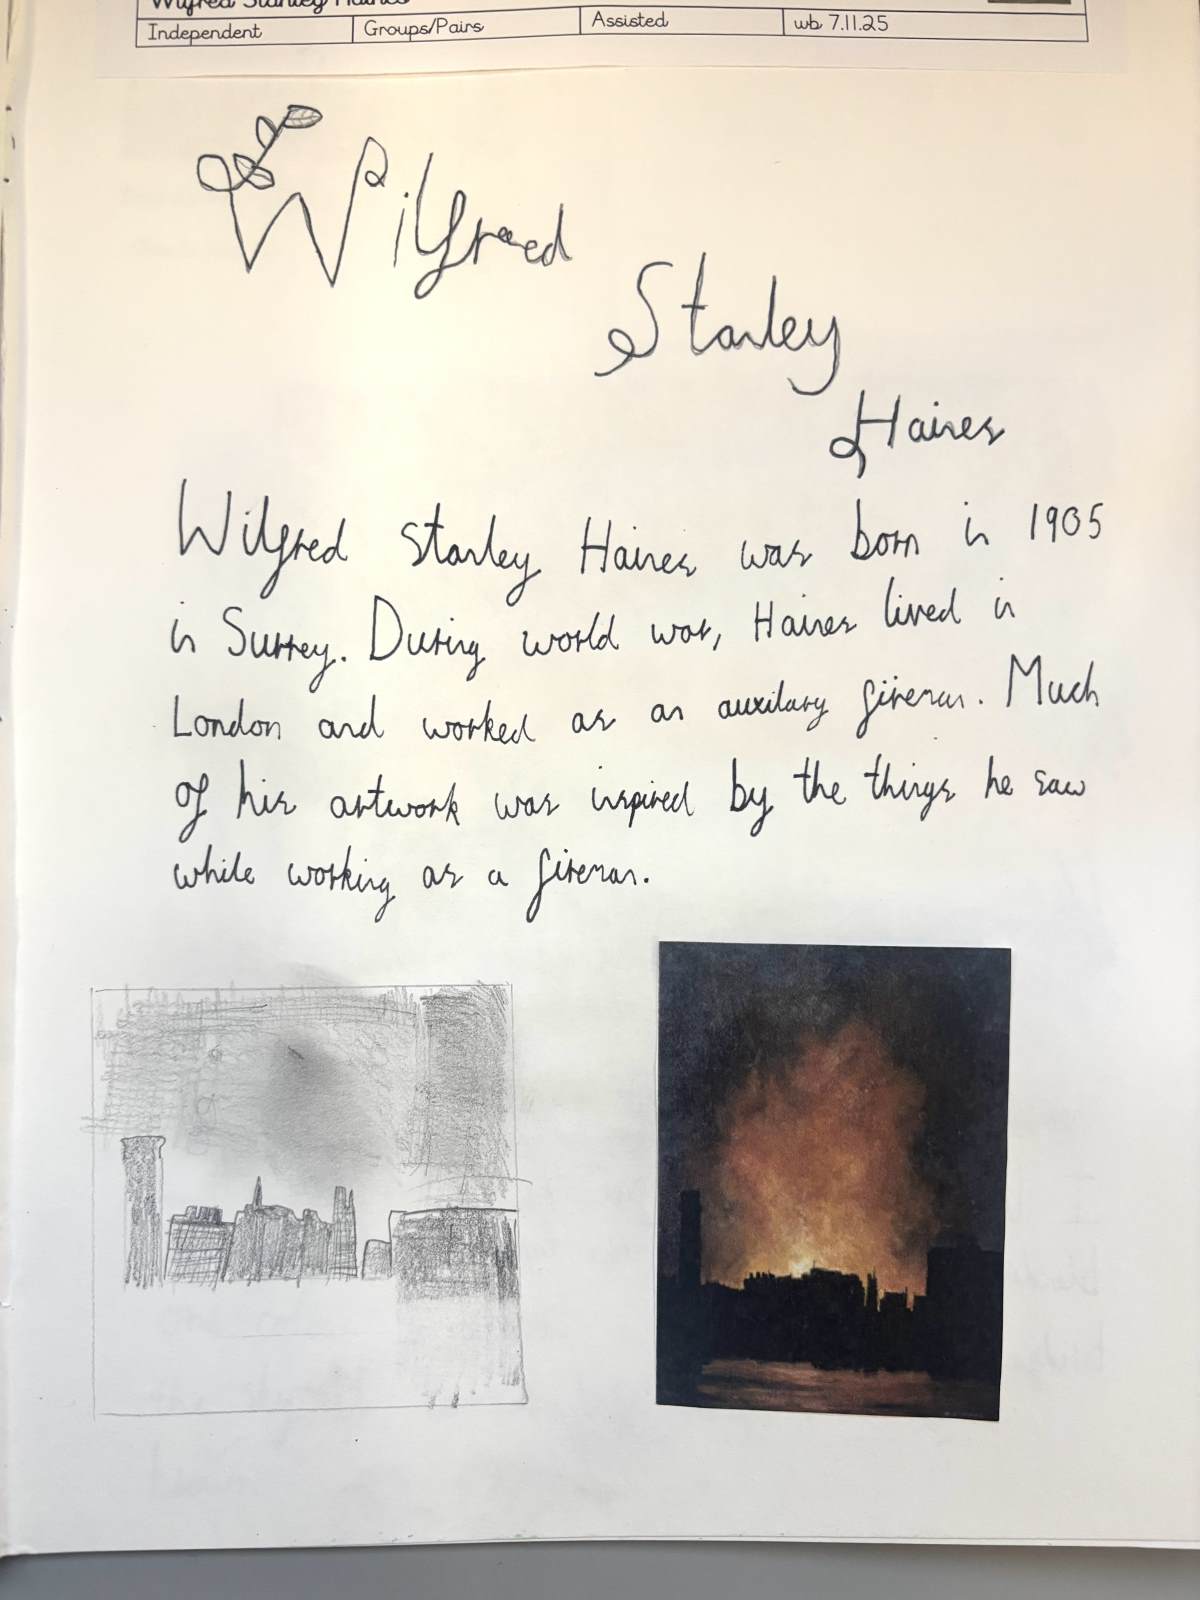 Wilfred Stanley Haines
Independent Groups/Pairs Assisted wb 7.11.25
Wilfreed
Stanley
Haines
Wilfred Stanley Haines was born in 1905
in Surrey. During world war, Haines lived in
London and worked as an auxilary fireman. Much
of his artwork was inspired by the things he saw
while working as a fireman.